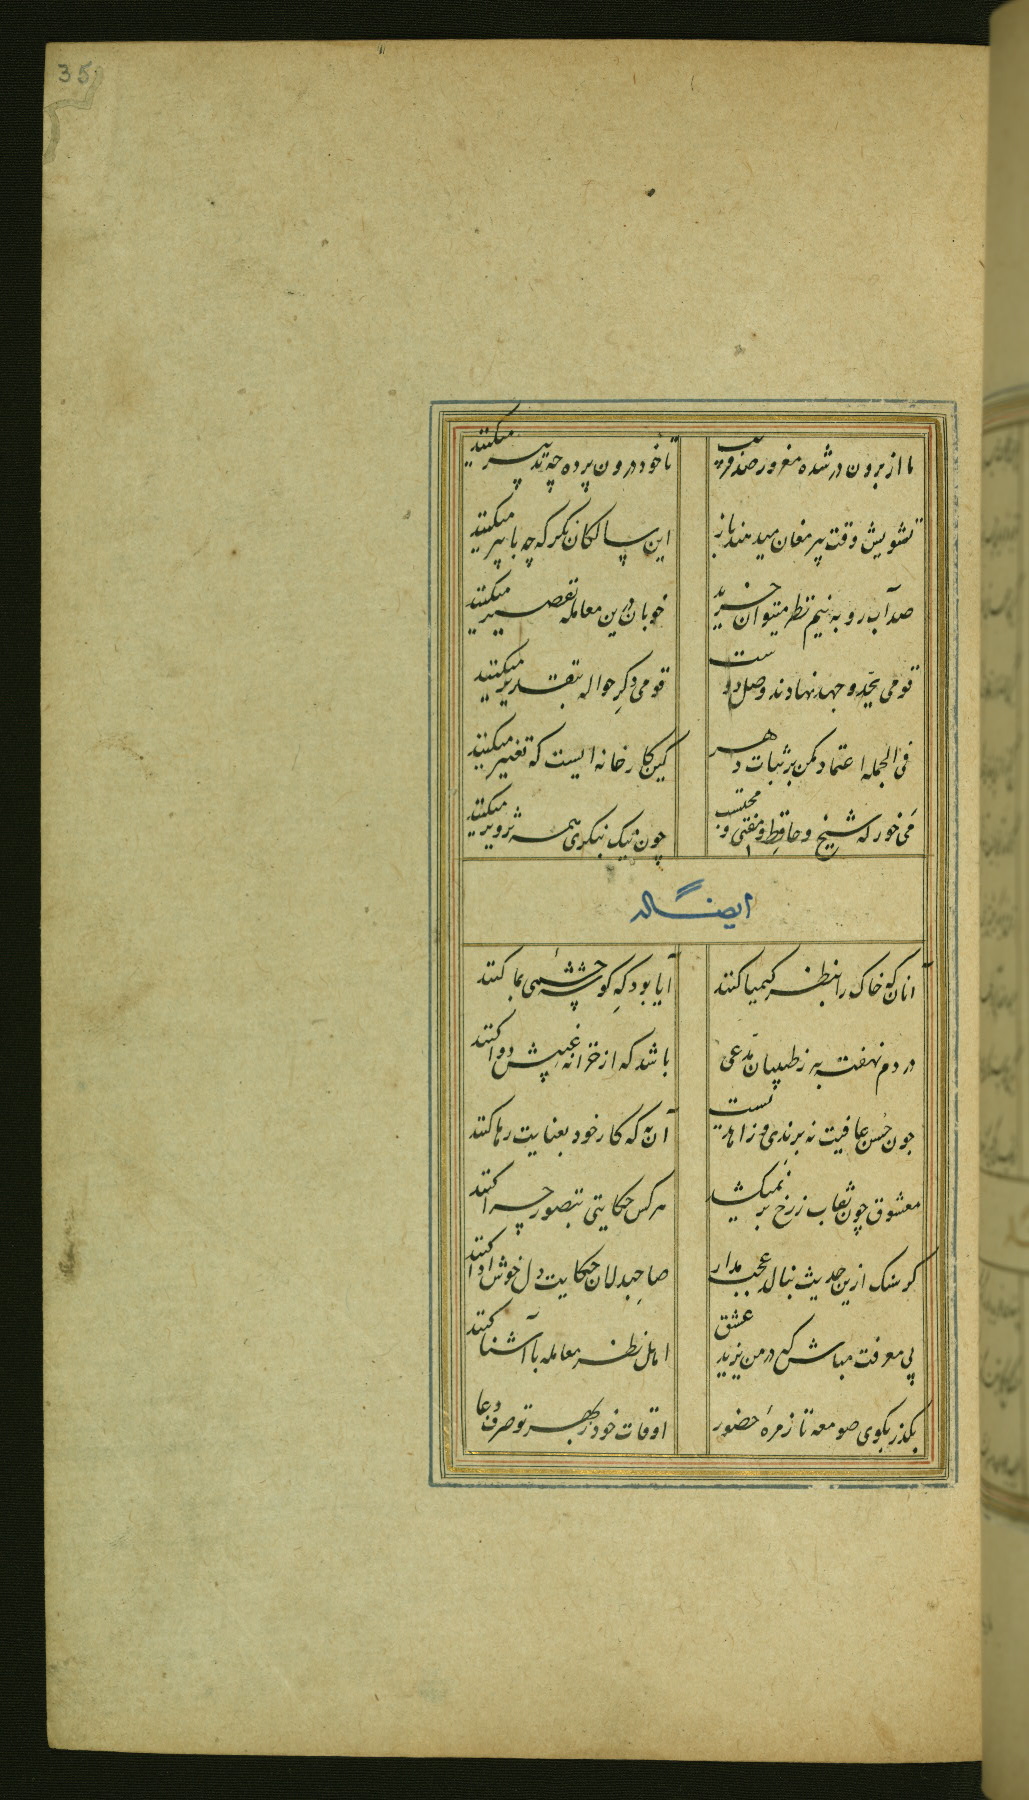 35
ما از برون در شده مغرور صد فریب
تا خود درون پرده چه تدبیر میکنند
تشویش وقت پیر مغان میدهند باز
این سالکان نکر که چه با پیر میکنند
صد آب رو به نیم نظر میتوان خرید
خوبان درین معامله تقصیر میکنند
قومی بجد و جهد نهادند وصل دوست
قومی دکر حواله بتقدیر میکنند
فی الجمله اعتماد مکن بر ثبات دهر
کین کارخانه ایست که تغییر میکنند
می خور که شیخ و حافظ و مفتی و محتسب
چون نیک بنکری همه تزویر میکنند
ایضاله
آنان که خاک را بنظر کیمیا کنند
آیا بود که کوشه چشمی بما کنند
دردم نهفته به ز طبیبان مدعی
باشد که از خزانه غیبش دوا کنند
چون حسن عاقبت نه برندی و زاهدیست
آن به که کار خود بعنایت رها کنند
معشوق چون نقاب ز رخ بر نمیکشد
هر کس حکایتی بتصور چرا کنند
کر سنک ازین حدیث بنالد عجب مدار
صاحبدلان حکایت دل خوش ادا کنند
بی معرفت مباش که در من یزید عشق
اهل نظر معامله با آشنا کنند
بکذر بکوی صومعه تا زمره حضور
اوقات خود ز بهر تو صرف دعا